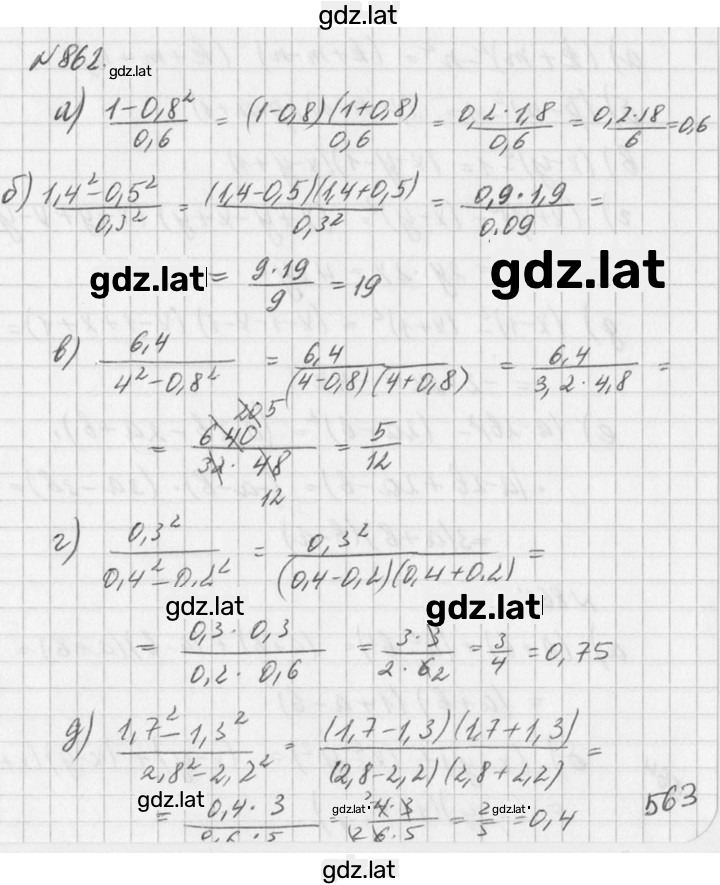 gdz.lat
№862.
gdz.lat
а) (1-0,8²)/0,6 = ((1-0,8)(1+0,8))/0,6 = (0,2·1,8)/0,6 = (0,2·18)/6 = 0,6
б) (1,4²-0,5²)/0,3² = ((1,4-0,5)(1,4+0,5))/0,3² = (0,9·1,9)/0.09 =
gdz.lat = (9·19)/9 = 19 gdz.lat
в) 6,4/(4²-0,8²) = 6,4/((4-0,8)(4+0,8)) = 6,4/(3,2·4,8) =
20 5
= 640/(32·48) = 5/12
12
г) 0,3²/(0,4²-0,2²) = 0,3²/((0,4-0,2)(0,4+0,2)) =
gdz.lat gdz.lat
= (0,3·0,3)/(0,2·0,6) = (3·3)/(2·6 2) = 3/4 = 0,75
д) (1,7²-1,3²)/(2,8²-2,2²) = ((1,7-1,3)(1,7+1,3))/((2,8-2,2)(2,8+2,2)) =
gdz.lat gdz.lat gdz.lat
= (0,4·3)/(0,6·5) = (2 4·3)/(2 6·5) = 2/5 = 0,4
563
gdz.lat